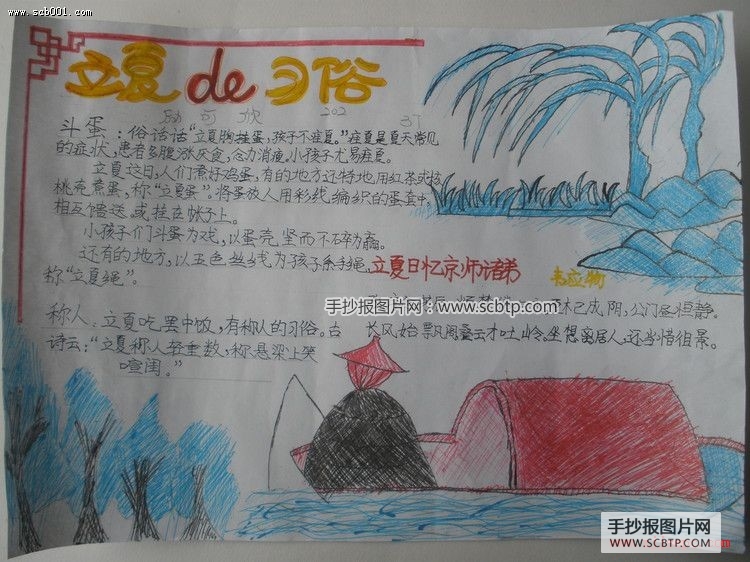 www.scb001.com
立夏de习俗
斗蛋：俗话话"立夏胸挂蛋，孩子不疰夏。"疰夏是夏天常见
的症状，患者多腹涨厌食，小孩子尤易疰夏。
立夏这日，人们煮好鸡蛋，有的地方还特地用红茶或核
桃壳煮蛋，称"立夏蛋"。将蛋放人用彩线编织的蛋套中，
相互馈送，或挂在帐子上。
小孩子们斗蛋为戏，以蛋壳坚而不碎为赢。
还有的地方，以五色丝线为孩子系手绳，
称"立夏绳"。
称人：立夏吃罢中饭，有称人的习俗。古
诗云："立夏称人轻重数，称悬梁上笑
喧闺。"
立夏日忆京师诸弟
韦应物
木已成阴，公门昼恒静。
长风始飘阁，叠云才吐岭。坐想离居人，还当惜徂景。
手抄报图片网
www.scbtp.com
手抄报图片网
WWW.SCBTP.COM